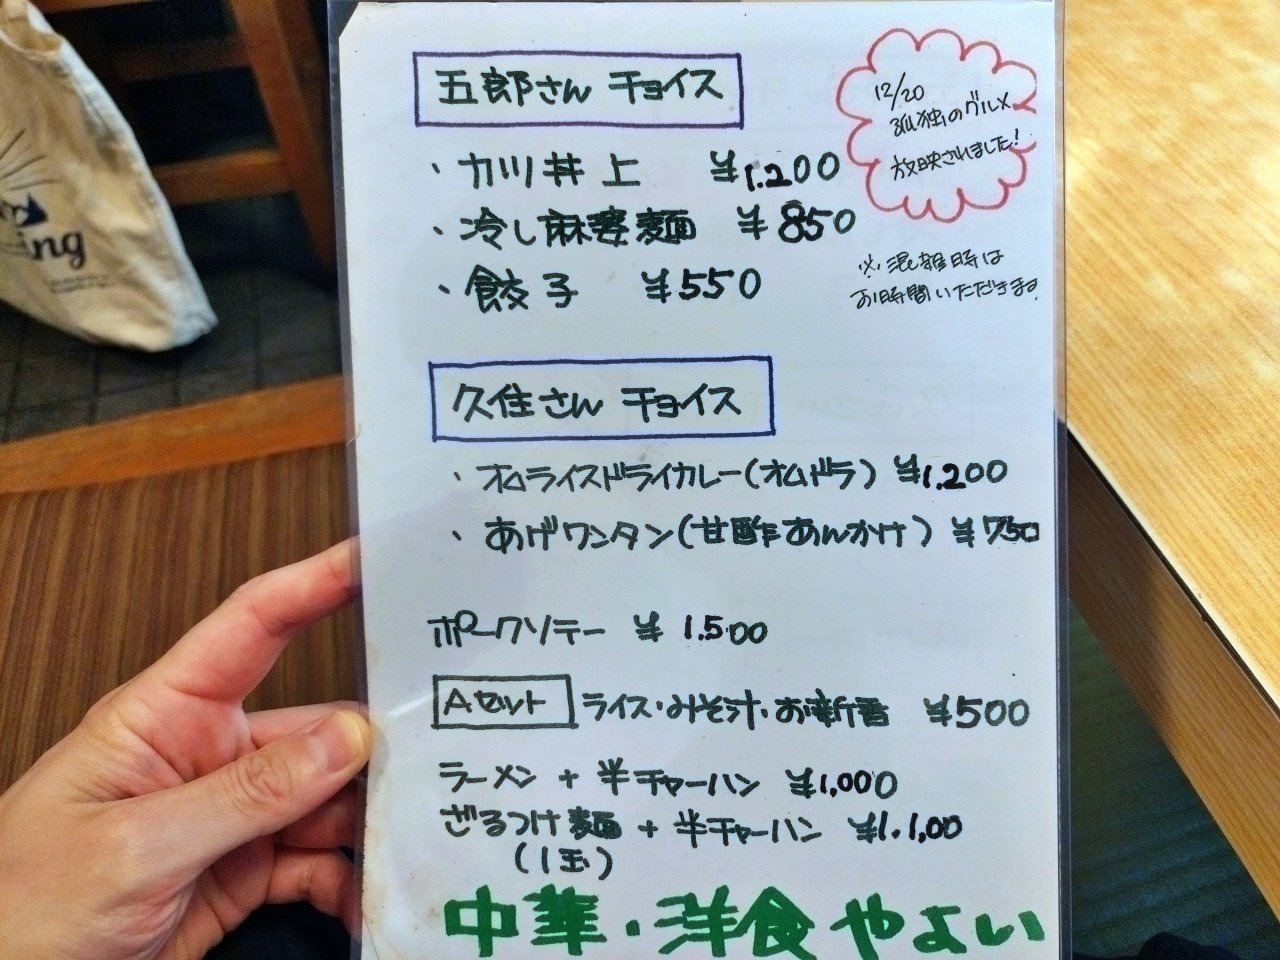 五郎さん チョイス
・カツ丼 上 ¥1.200
・冷し麻婆麺 ¥850
・餃子 ¥550
12/20
孤独のグルメ
放映されました!
※混雑時は
お時間いただきます
久住さん チョイス
・オムライスドライカレー(オムドラ) ¥1.200
・あげワンタン(甘酢あんかけ) ¥750
ポークソテー ¥1.500
Aセット ライス・みそ汁・お新香 ¥500
ラーメン + 半チャーハン ¥1,000
ざるつけ麺 + 半チャーハン ¥1.1,00
(1玉)
中華・洋食 やよい
ing